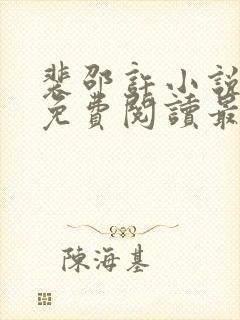 裴邵許小說
免費閱讀最
陳海基